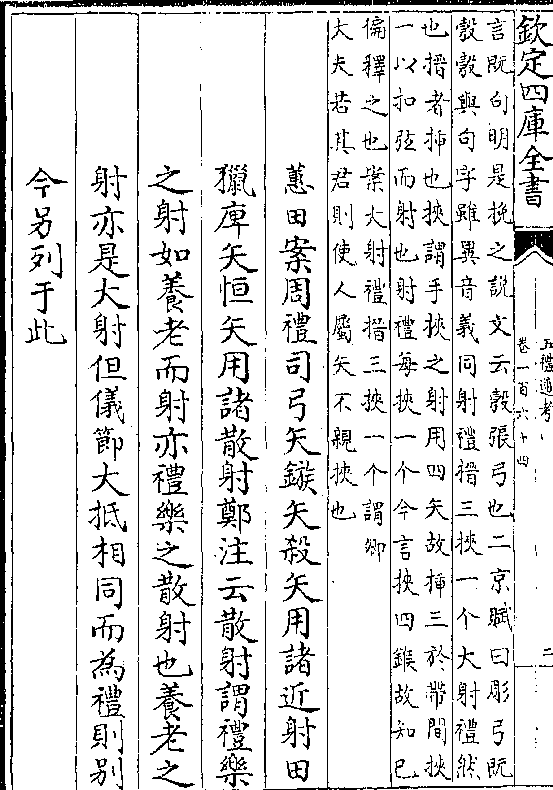 欽定四庫全書
五禮通考
卷一百六十四
二
言既句明是挽之説文云彀張弓也二京賦曰彫弓既
彀彀與句字雖異音義同射禮搢三挾一个大射禮然
也搢者揷也挾謂手挾之射用四矢故揷三於帶間挾
一以扣弦而射也射禮每挾一个今言挾四鍭故知已
徧釋之也案大射禮搢三挾一个謂卿
大夫若其君則使人屬矢不親挾也
蕙田案周禮司弓矢鍭矢殺矢用諸近射田
獵庳矢恒矢用諸散射鄭注云散射謂禮樂
之射如養老而射亦禮樂之散射也養老之
射亦是大射但儀節大抵相同而為禮則别
今另列于此